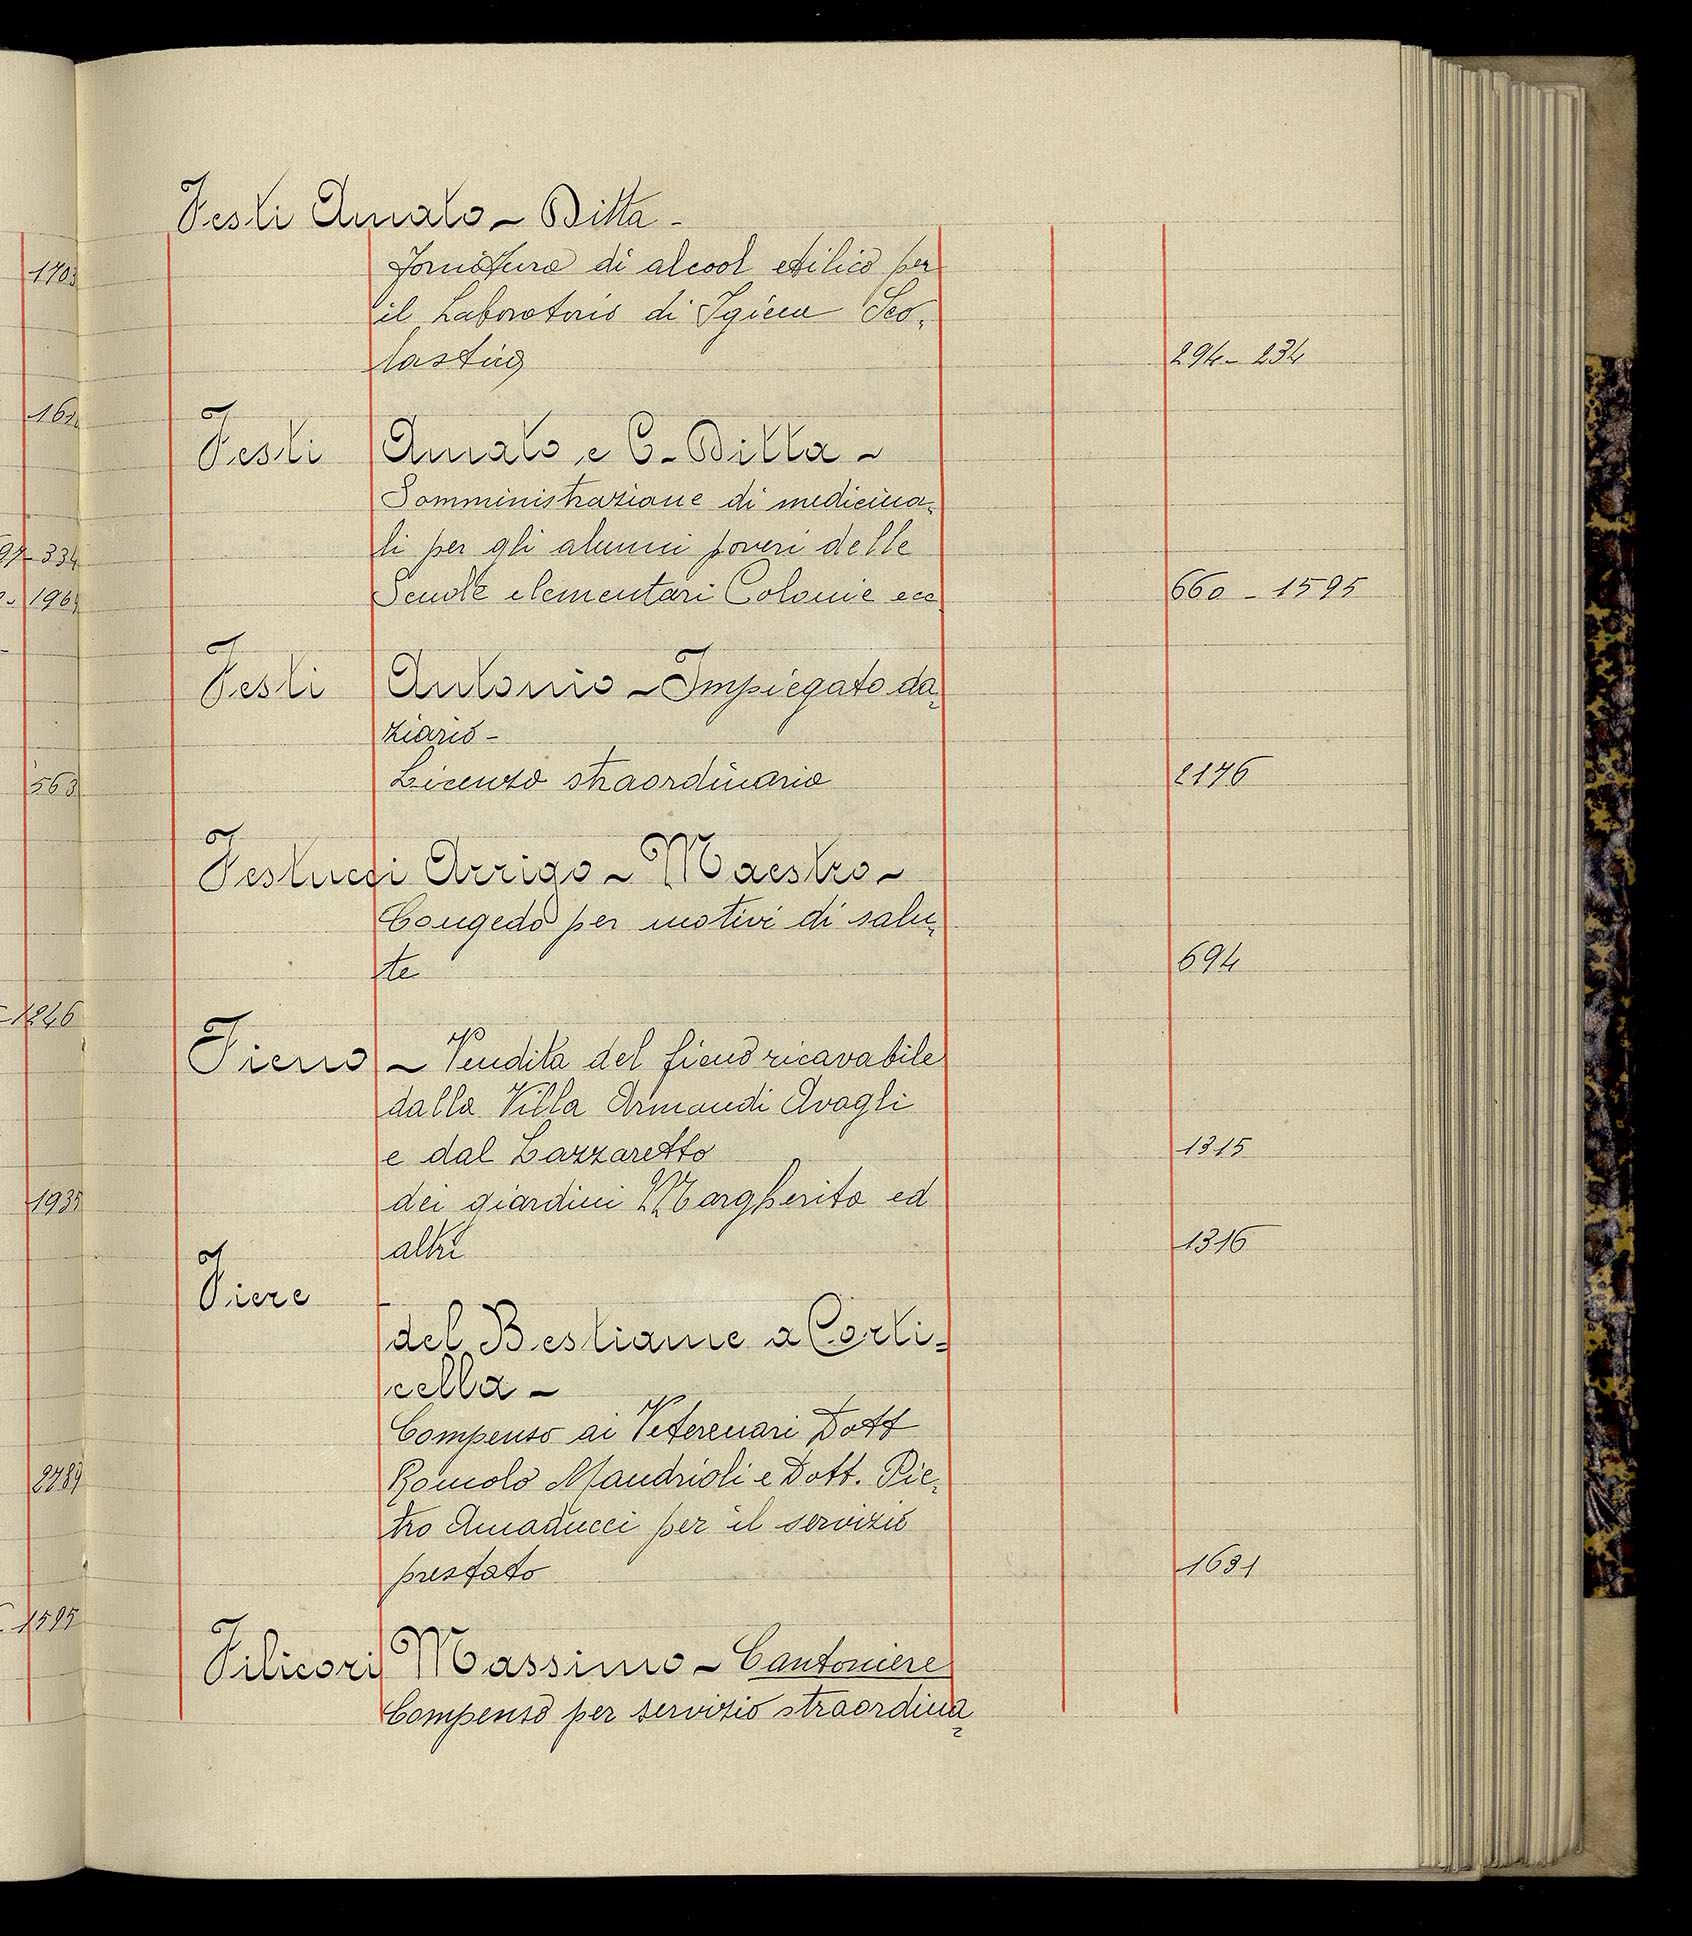 Festi Amato - Ditta -
1703
Fornitura di alcool etilico per
il Laboratorio di Igiene Sco-
lastica 294 - 234
162
Festi Amato e C - Ditta -
Somministrazione di medicina-
li per gli alunni poveri delle
97 - 334
Scuole elementari Colonie ecc 660 - 1595
1964
Festi Antonio - Impiegato da-
ziario -
Licenza straordinaria 2176
563
Festucci Arrigo - Maestro -
Congedo per motivi di salu-
te 694
- 1246
Fieno - Vendita del fieno ricavabile
dalla Villa Armandi Avogli
e dal Lazzaretto 1315
dei giardini Margherita ed
1935
altri 1316
Fiere
del Bestiame a Corti=
cella -
Compenso ai Veterenari Dott
Romolo Mandrioli e Dott. Pie-
2789
tro Amaducci per il servizio
prestato 1631
- 1595
Filicori Massimo - Cantoniere
Compenso per servizio straordina-